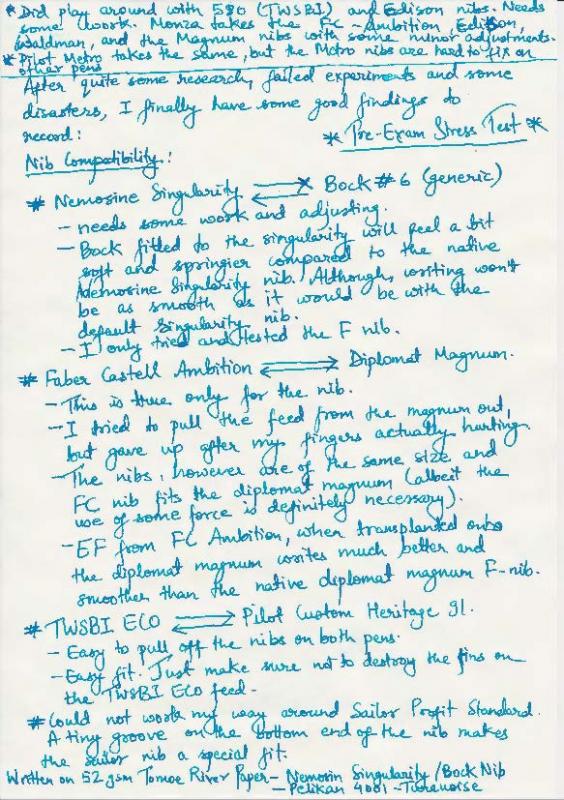 * Did play around with 580 (TWSBI) and Edison nibs. Needs
some work. Monza takes the FC-Ambition, Edison,
Waldman, and the Magnum nibs with some minor adjustments.
* Pilot Metro takes the same, but the Metro nibs are hard to fix on
other pens
After quite some research, failed experiments and some
disasters, I finally have some good findings to
record:
* Pre-Exam Stress Test *
Nib Compatibility:
# Nemosine Singularity ⇄ Bock #6 (generic)
- needs some work and adjusting.
- Bock fitted to the singularity will feel a bit
soft and springier compared to the native
Nemosine Singularity nib. Although, writing won't
be as smooth as it would be with the
default Singularity nib.
- I only tried and tested the F nib.
# Faber Castell Ambition ⇄ Diplomat Magnum.
- This is true only for the nib.
- I tried to pull the feed from the magnum out,
but gave up after my fingers actually hurting
- The nibs, however are of the same size and
FC nib fits the diplomat magnum (albeit the
use of some force is definitely necessary).
- EF from FC Ambition, when transplanted onto
the diplomat magnum writes much better and
smoother than the native diplomat magnum F-nib.
# TWSBI ECO ⇄ Pilot Custom Heritage 91.
- Easy to pull off the nibs on both pens.
- Easy fit. Just make sure not to destroy the fins on
the TWSBI ECO feed-
# Could not work my way around Sailor Profit Standard.
A tiny groove on the bottom end of the nib makes
the sailor nib a special fit.
Written on 52 gsm Tomoe River Paper- Nemosin Singularity/Bock Nib
- Pelikan 4001 - Turquoise